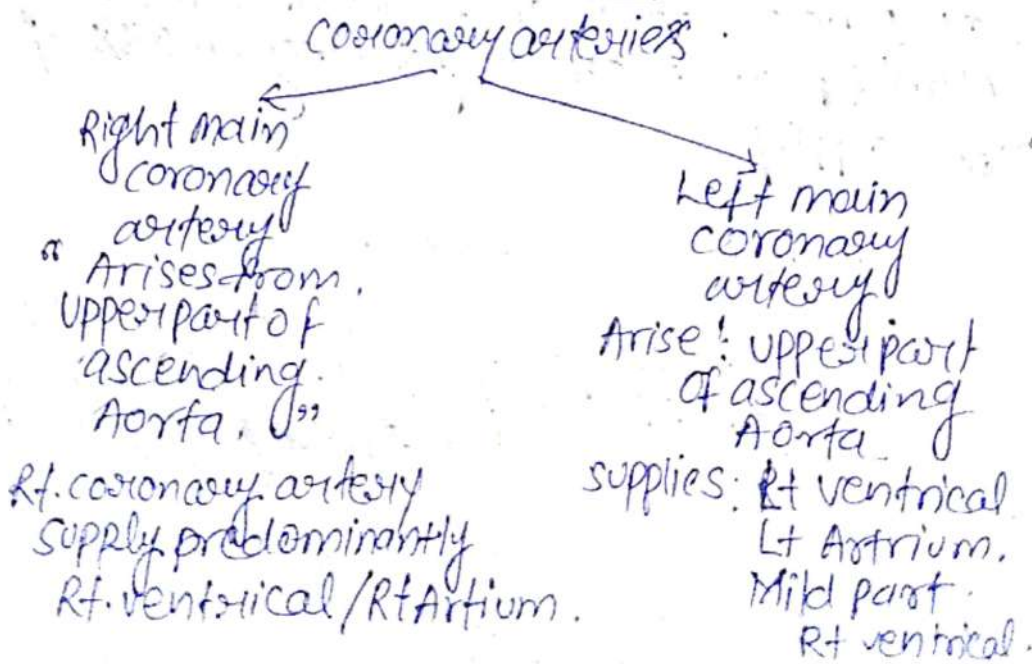 coronary arteries
Right main
coronary
artery
“ Arises from.
upper part of
ascending.
Aorta. ”
Rt. coronary artery
supply predominantly
Rt. ventrical / Rt Artium.
Left main
coronary
artery
Arise : upper part
of ascending
Aorta
supplies: Rt ventrical
Lt Artrium.
Mild part.
Rt ventrical.